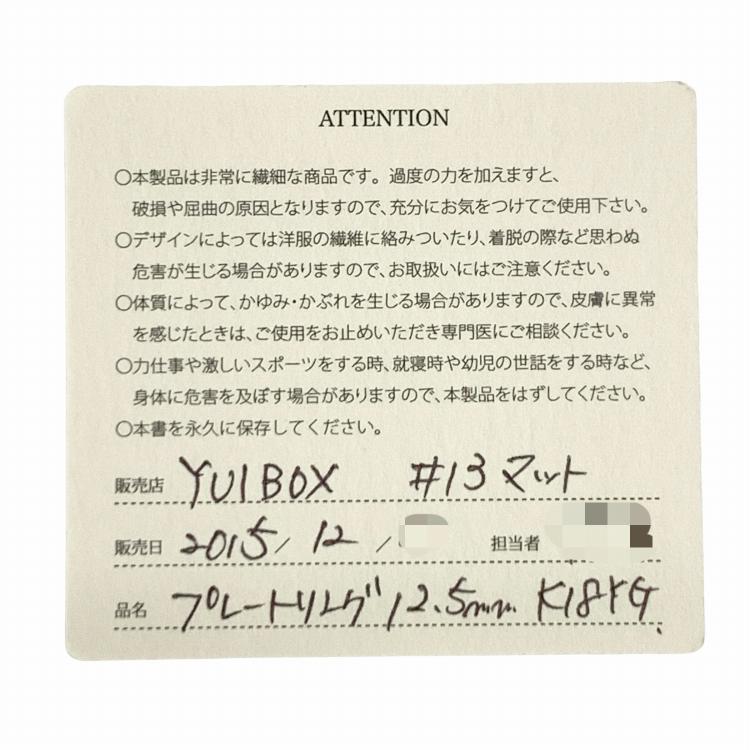 ATTENTION
○本製品は非常に繊細な商品です。過度の力を加えますと、
破損や屈曲の原因となりますので、充分にお気をつけてご使用下さい。
○デザインによっては洋服の繊維に絡みついたり、着脱の際など思わぬ
危害が生じる場合がありますので、お取扱いにはご注意ください。
○体質によって、かゆみ・かぶれを生じる場合がありますので、皮膚に異常
を感じたときは、ご使用をお止めいただき専門医にご相談ください。
○力仕事や激しいスポーツをする時、就寝時や幼児の世話をする時など、
身体に危害を及ぼす場合がありますので、本製品をはずしてください。
○本書を永久に保存してください。
販売店 YUIBOX #13 マット
販売日 2015/12/ 担当者
品名 プレートリング 12.5mm K18YG